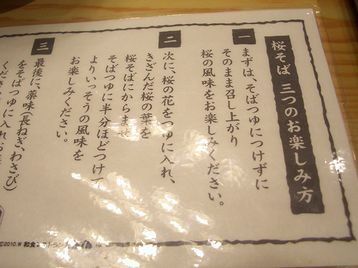 桜そば 三つのお楽しみ方
一
まずは、そばつゆにつけずに
そのまま召し上がり
桜の風味をお楽しみください。
二
次に、桜の花をつゆに入れ、
きざんだ桜の葉を
桜そばにからませ
そばつゆに半分ほどつけて
よりいっそうの風味を
お楽しみください。
三
最後に、薬味(長ねぎ、わさび)
をそばつゆに入れ、お
ください
©2010.